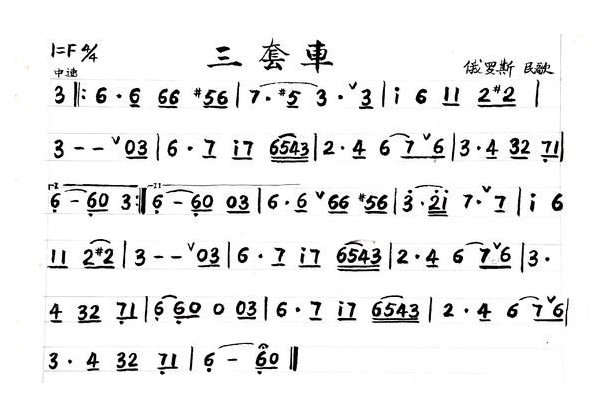 1=F 4/4 三套車
中速 俄罗斯 民歌
3 ‖: 6 · 6 66 #56 | 7 · #5 3 · ∨3 | i 6 11 2#2 |
3 - - ∨03 | 6 · 7 i7 6543 | 2 · 4 6 7∨6 | 3 · 4 32 71 |
I 6 - 60 3 :‖ II 6 - 60 03 | 6 · 6 ∨66 #56 | 3 · 2i 7 · ∨7 | i 6
11 2#2 | 3 - - ∨03 | 6 · 7 i7 6543 | 2 · 4 6 7∨6 | 3 ·
4 32 71 | 6 60 0 03 | 6 · 7 i7 6543 | 2 · 4 6 7∨6 |
3 · 4 32 71 | 6 - 60 ‖